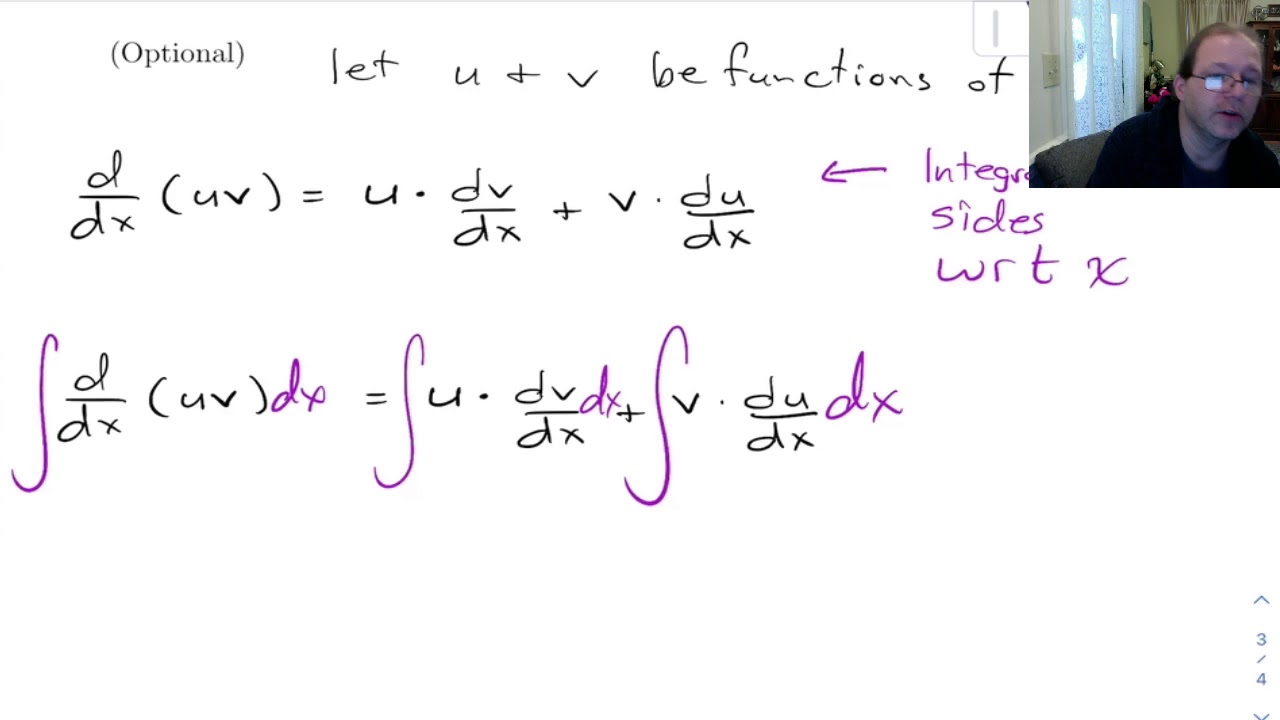 (Optional) let u + v be functions of
d/dx (uv) = u · dv/dx + v · du/dx ←
sides
wrt x
∫ d/dx (uv) dx = ∫ u · dv/dx dx + ∫ v · du/dx dx
3
/
4